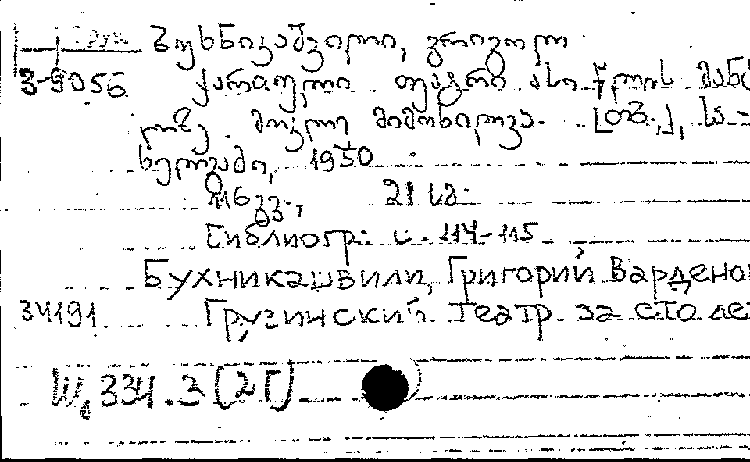 ბუხნიკაშვილი, გრიგოლ
3-9056 ქართული თეატრი ასი წლის მანძ
ილზე. მოკლე მიმოხილვა. [თბ.], სა-
ხელგამი, 1950
21 სმ.
Библиогр: с. 114-115
Бухникашвили, Григорий Варденов
34191 Грузинский театр за сто лет
Щ 334.3 (2Г)